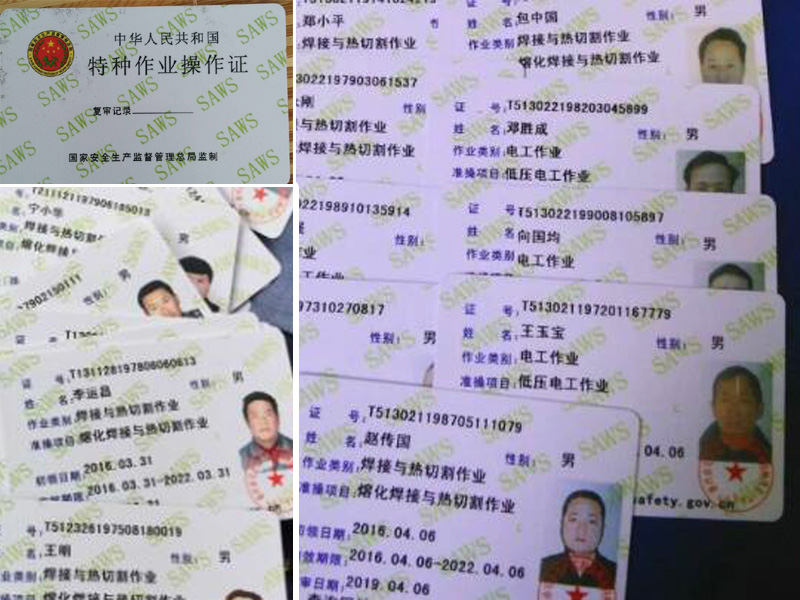 中华人民共和国
特种作业操作证
复审记录
国家安全生产监督管理总局监制
SAWS
宁小华
焊接与热切割
熔化焊接
性别：男
证 号：T131128197806060613
姓 名：李运昌
性别：男
作业类别：焊接与热切割作业
准操项目：熔化焊接与热切割作业
初领日期：2016.03.31
有效期限：2016.03.31-2022.03.31
号：T512326197508180019
名：王刚
性别：男
类别：焊接与热切割作业
郑小平
性别
焊接与热切割作业
熔化焊接与热切割作业
姓 名：包中国
性别：男
作业类别：焊接与热切割作业
熔化焊接与热切割作业
3022197903061537
刚
性别
与热切割作业
焊接与热切割作业
证 号：T513022198203045899
姓 名：邓胜成
性别：男
作业类别：电工作业
准操项目：低压电工作业
22198910135914
性别：
作业
工作业
证 号：T513022199008105897
姓 名：向国均
性别：男
作业类别：电工作业
97310270817
性别：男
证 号：T513021197201167779
姓 名：王玉宝
性别：男
作业类别：电工作业
准操项目：低压电工作业
.04.06
safety.gov.cn
证 号：T513021198705111079
姓 名：赵传国
性别：男
作业类别：焊接与热切割作业
准操项目：熔化焊接与热切割作业
初领日期：2016.04.06
有效期限：2016.04.06-2022.04.06
审日期：2019.04.06